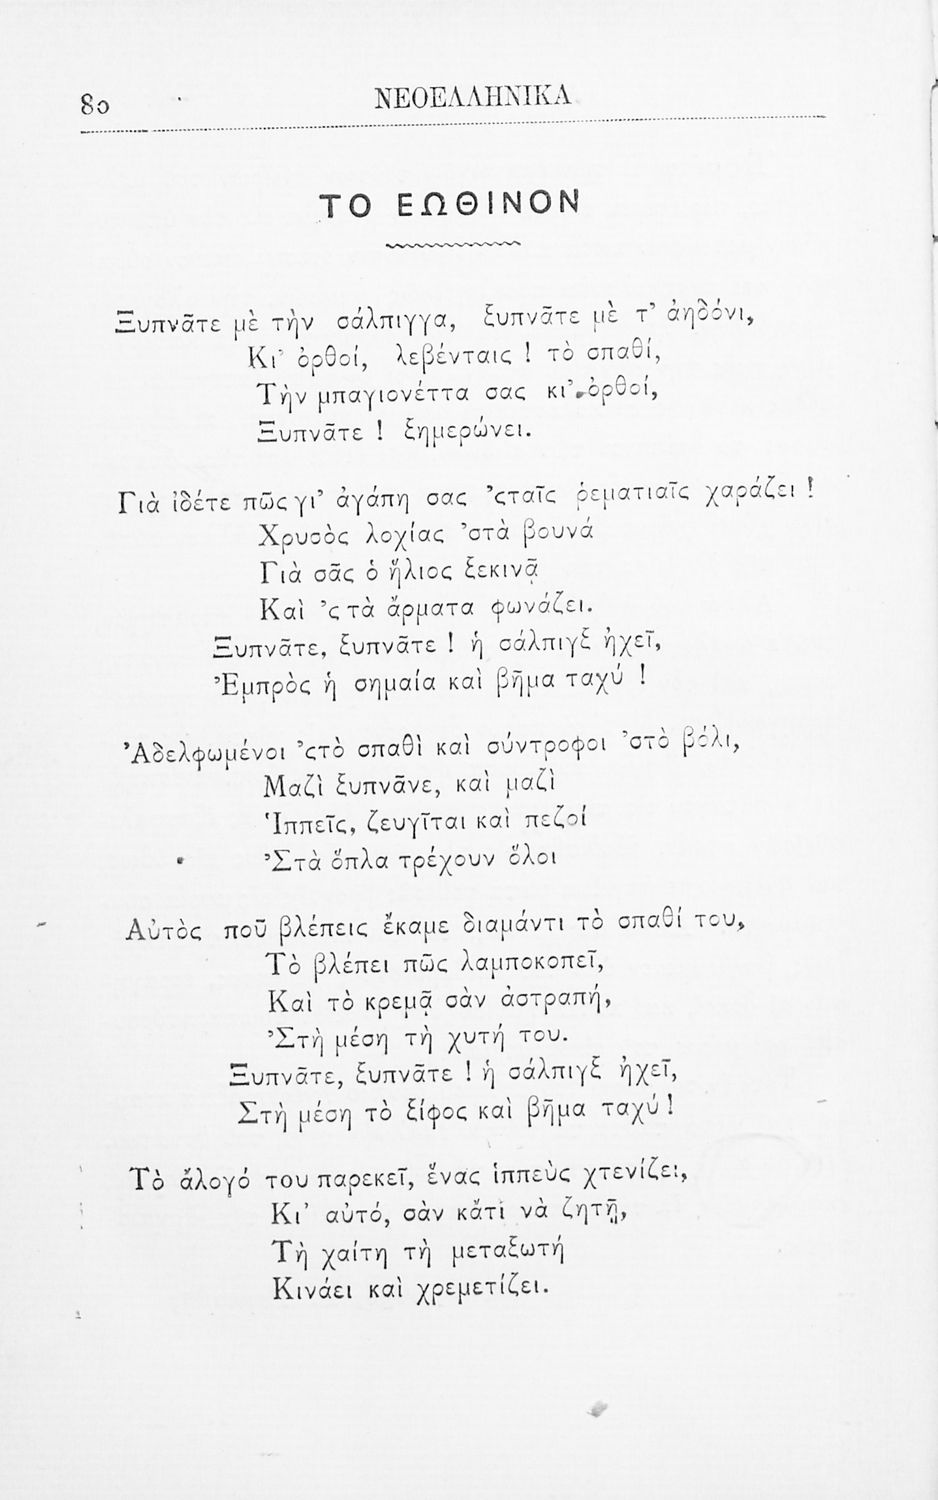 80 ΝΕΟΕΛΛΗΝΙΚΑ
ΤΟ ΕΩΘΙΝΟΝ
Ξυπνᾶτε μὲ τὴν σάλπιγγα, ξυπνᾶτε μὲ τ’ ἀηδόνι,
Κι’ ὀρθοί, λεβένταις ! τὸ σπαθί,
Τὴν μπαγιονέττα σας κι’ ὀρθοί,
Ξυπνᾶτε ! ξημερώνει.
Γιὰ ἰδέτε πῶς γι’ ἀγάπη σας ’ςταῖς ῥεματιαῖς χαράζει !
Χρυσὸς λοχίας ’στὰ βουνά
Γιὰ σᾶς ὁ ἥλιος ξεκινᾷ
Καὶ ’ς τὰ ἄρματα φωνάζει.
Ξυπνᾶτε, ξυπνᾶτε ! ἡ σάλπιγξ ἠχεῖ,
Ἐμπρὸς ἡ σημαία καὶ βῆμα ταχύ !
Ἀδελφωμένοι ’ςτὸ σπαθὶ καὶ σύντροφοι ’στὸ βόλι,
Μαζὶ ξυπνᾶνε, καὶ μαζὶ
Ἱππεῖς, ζευγῖται καὶ πεζοί
’Στὰ ὅπλα τρέχουν ὅλοι
Αὐτὸς ποῦ βλέπεις ἔκαμε διαμάντι τὸ σπαθί του,
Τὸ βλέπει πῶς λαμποκοπεῖ,
Καὶ τὸ κρεμᾷ σὰν ἀστραπή,
’Στὴ μέση τὴ χυτή του.
Ξυπνᾶτε, ξυπνᾶτε ! ἡ σάλπιγξ ἠχεῖ,
Στὴ μέση τὸ ξίφος καὶ βῆμα ταχύ !
Τὸ ἄλογό του παρεκεῖ, ἕνας ἱππεὺς χτενίζει,
Κι’ αὐτό, σὰν κἄτι νὰ ζητῇ,
Τὴ χαίτη τὴ μεταξωτή
Κινάει καὶ χρεμετίζει.